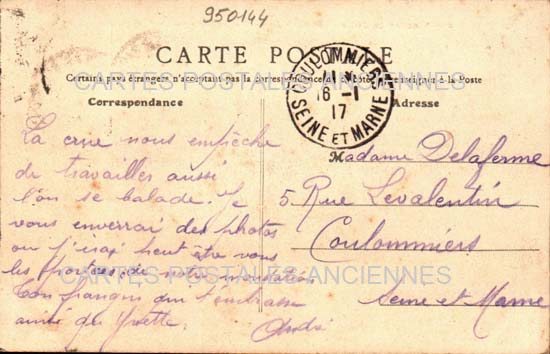 950144
CARTE POSTALE
Certains pays étrangers n'acceptant pas la correspondance au recto, se renseigner à la Poste
Correspondance
Adresse
COULOMMIERS
16 - 1
17
SEINE ET MARNE
CARTES POSTALES ANCIENNES
La crue nous empêche
de travailler aussi
l'on se balade. Je
vous enverrai des photos
ou j'irai peut être vous
les porter
Ton françois qui t'embrasse
ainsi que Yvette.
André
Madame Delaferme
5. Rue Levalentin
Coulommiers
Seine et Marne
CARTES POSTALES ANCIENNES